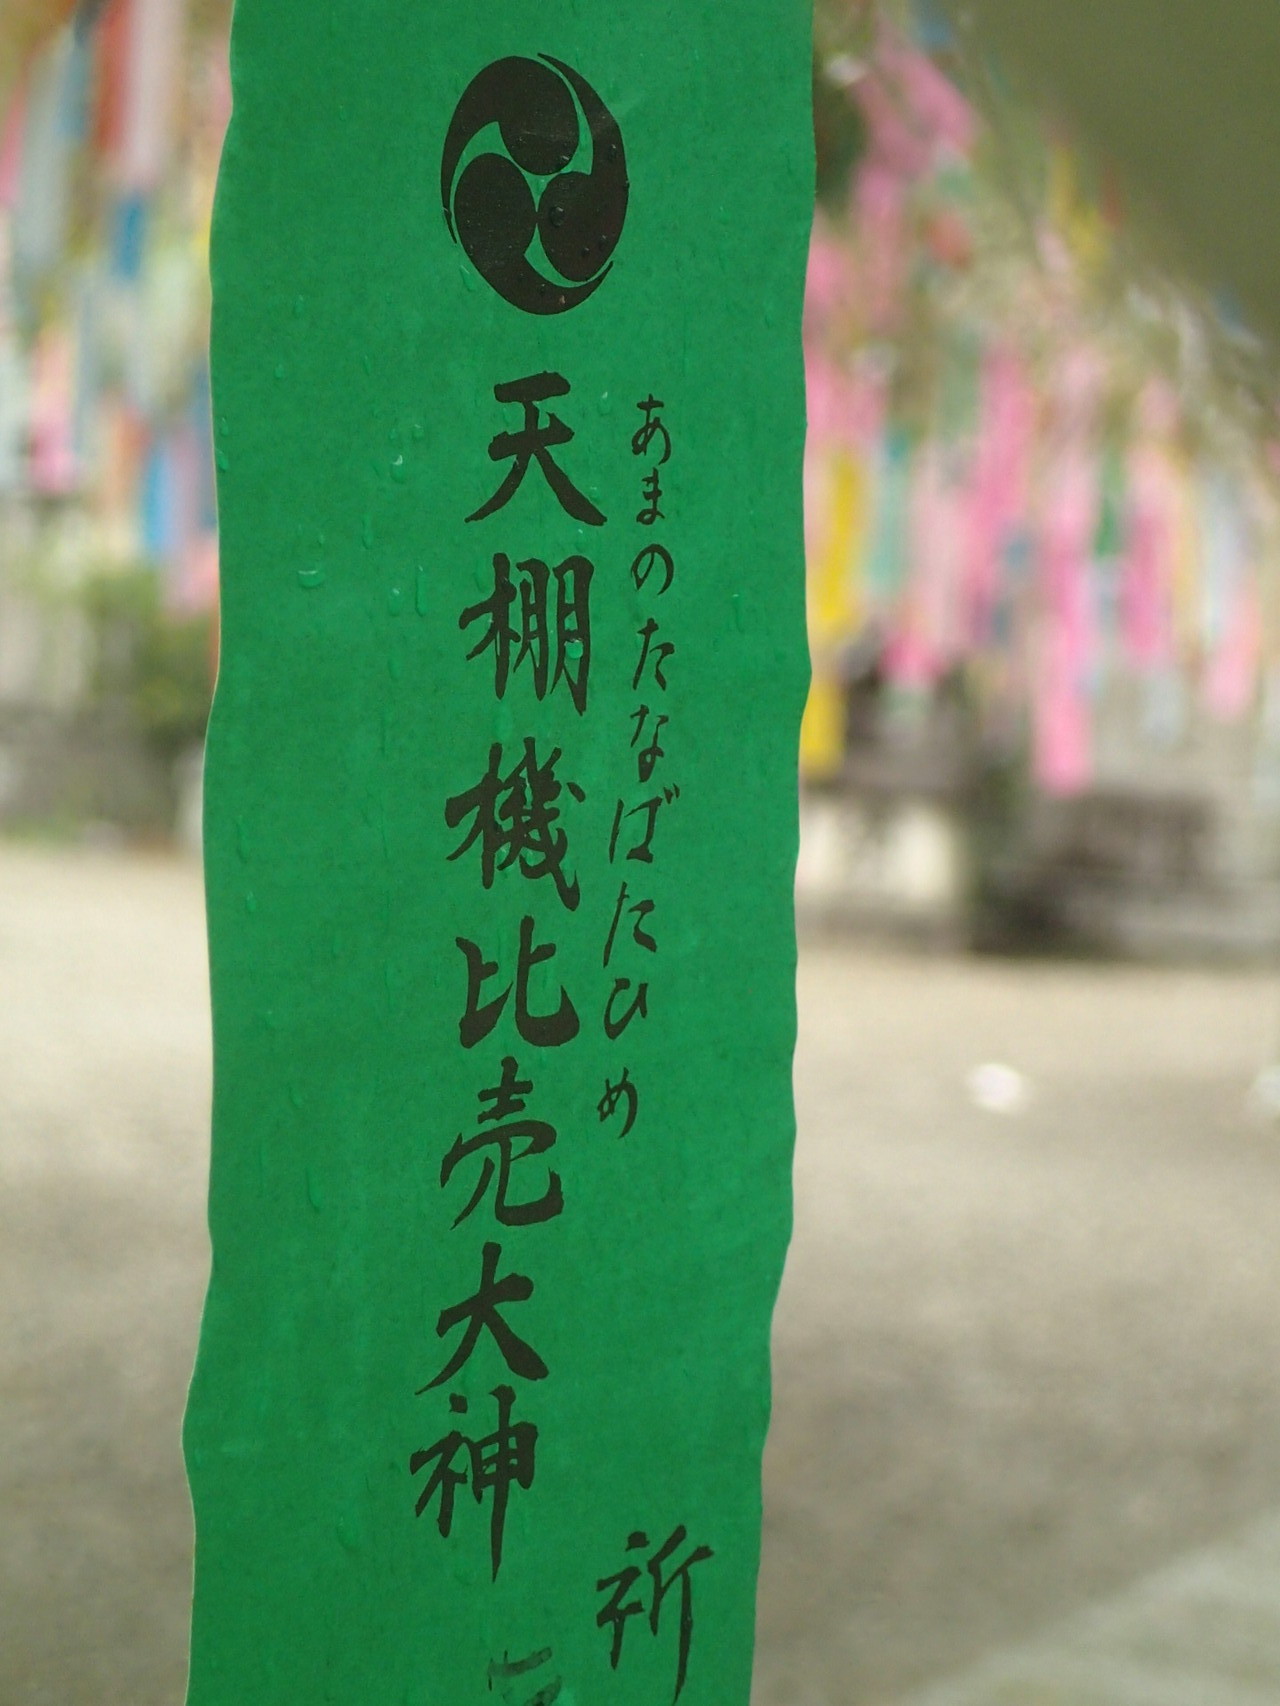 あまのたなばたひめ
天棚機比売大神
祈